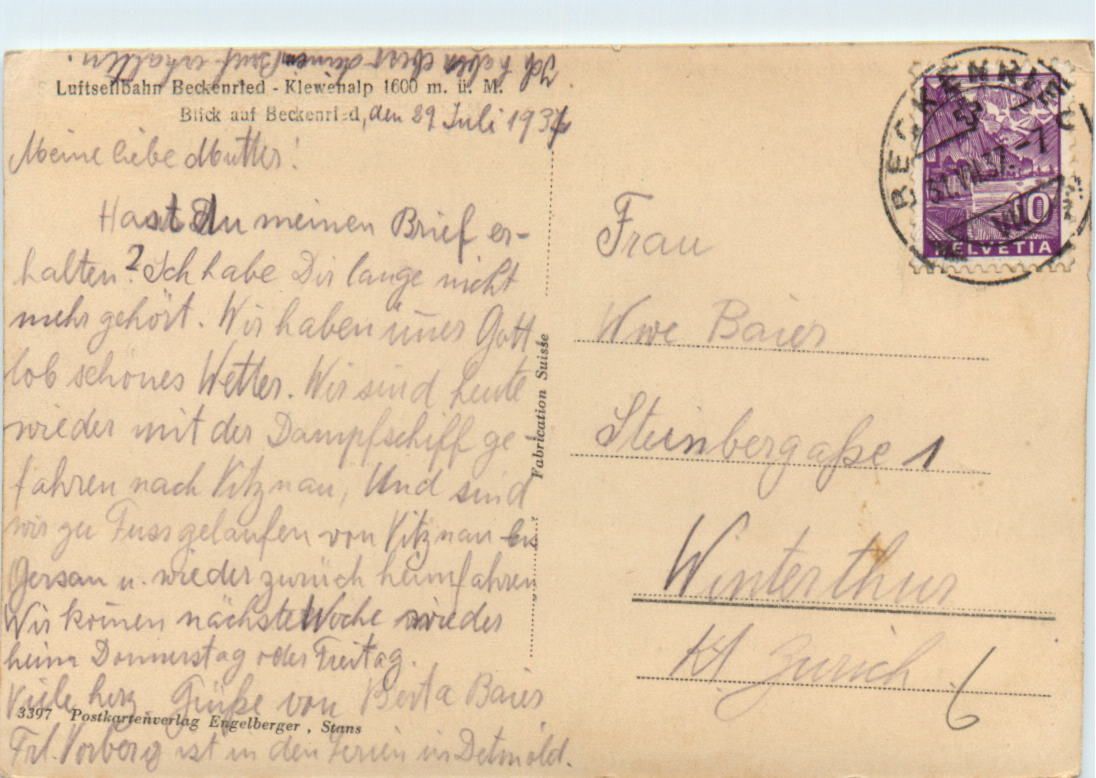 Ich habe eben deinen Brief erhalten.
Luftseilbahn Beckenried - Klewenalp 1600 m. ü. M.
Blick auf Beckenried, den 29 Juli 1937
Meine liebe Mutter!
Hast Du meinen Brief er-
halten? Ich habe Dir lange nicht
mehr gehört. Wir haben imer Gott
lob schönes Wetter. Wir sind heute
wieder mit der Dampfschiff ge
fahren nach Vitznau, Und sind
wir zu Fuss gelaufen von Vitznau bis
Gersau u. wieder zurück heimfahren
Wir komen nächste Woche wieder
heim Donnerstag oder Freitag.
Viele herz. Grüße von Berta Baier
3397 Postkartenverlag Engelberger, Stans
Frl. Vorberg ist in den Ferien in Detmold.
Fabrication Suisse
BECKENRIED
31.VII.37.-7
10
HELVETIA
Frau
Wwe Baier
Steinbergaße 1
Winterthur
Kt Zürich
6